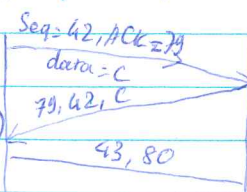 Seq=42, ACK=79
data=C
79, 42, C
43, 80